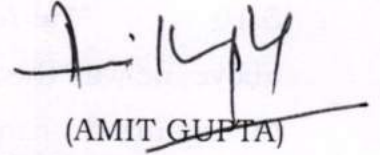 (AMIT GUPTA)